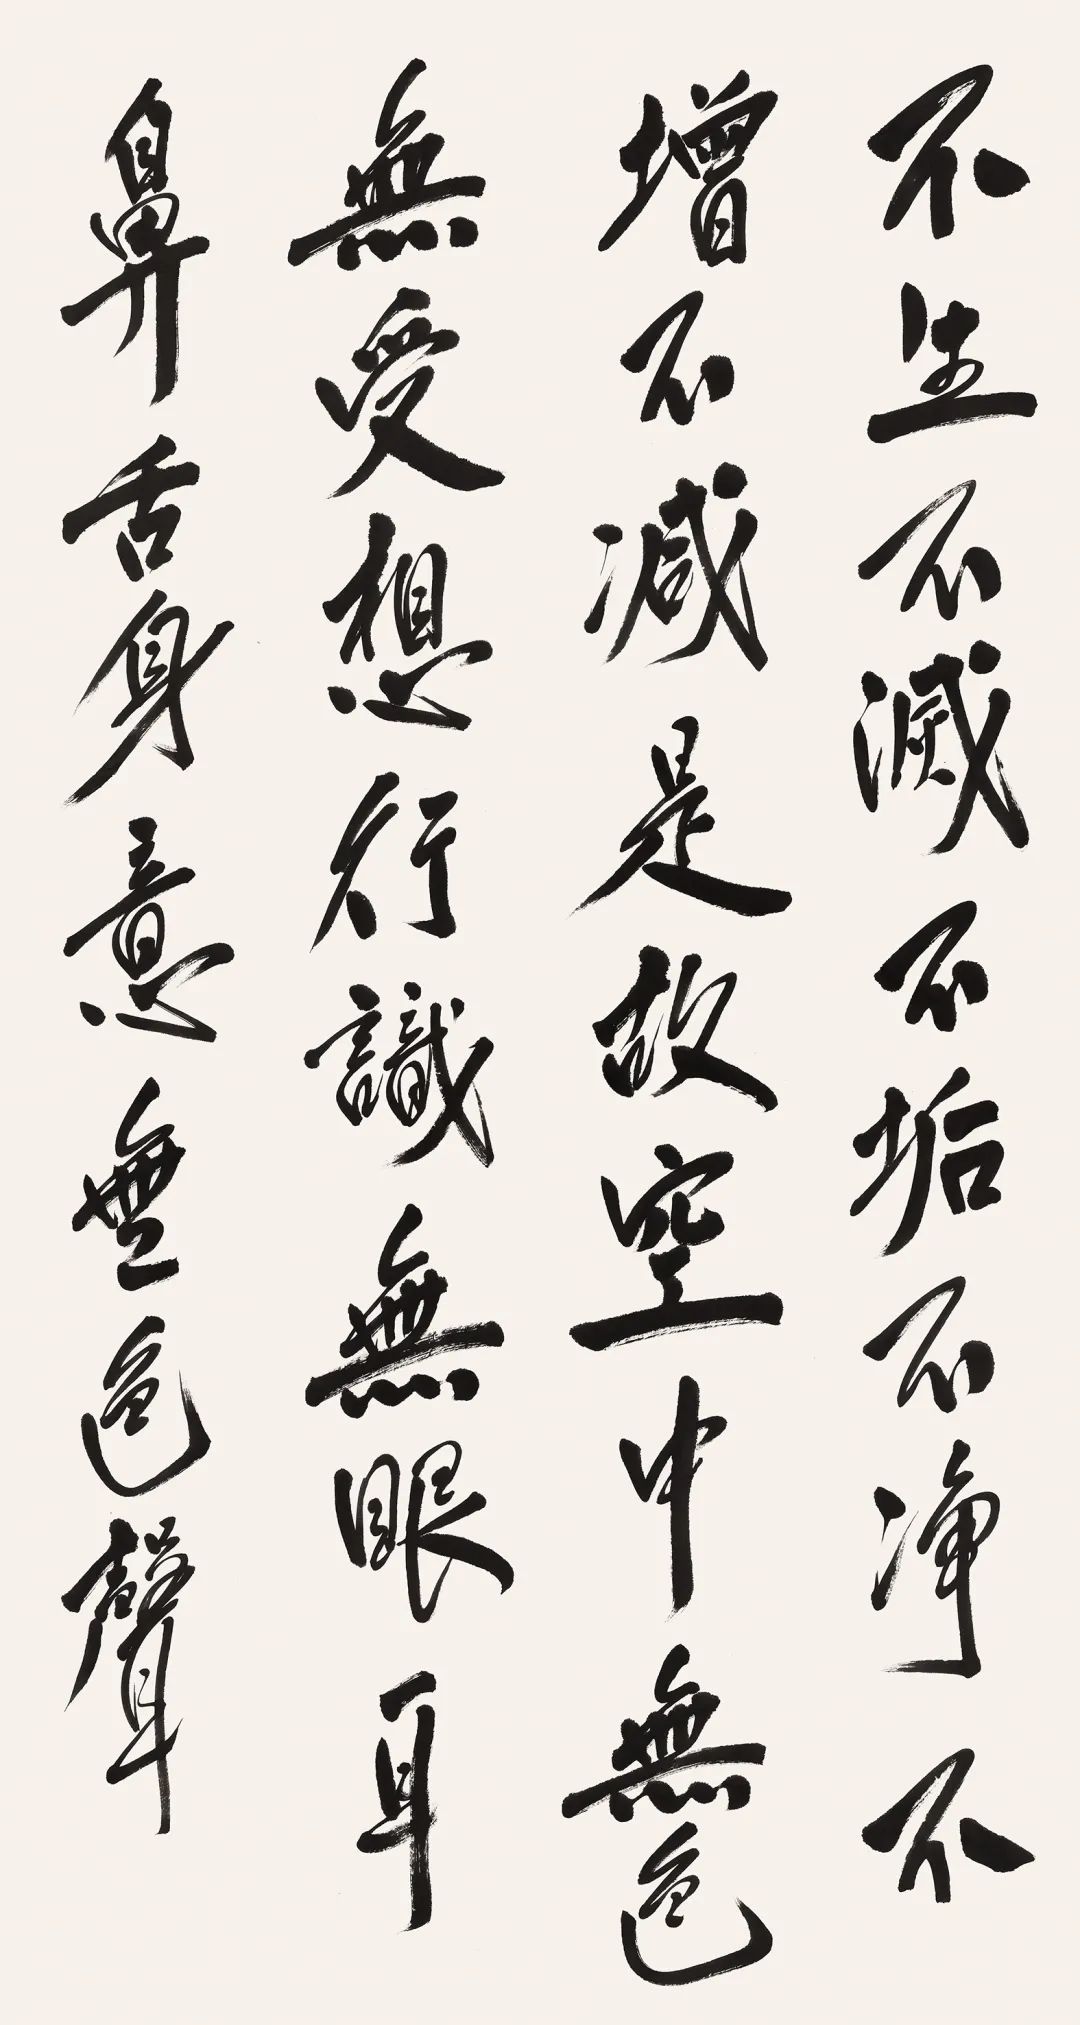 不生不滅不垢不净不
增不減是故空中無色
無受想行識無眼耳
鼻舌身意無色聲